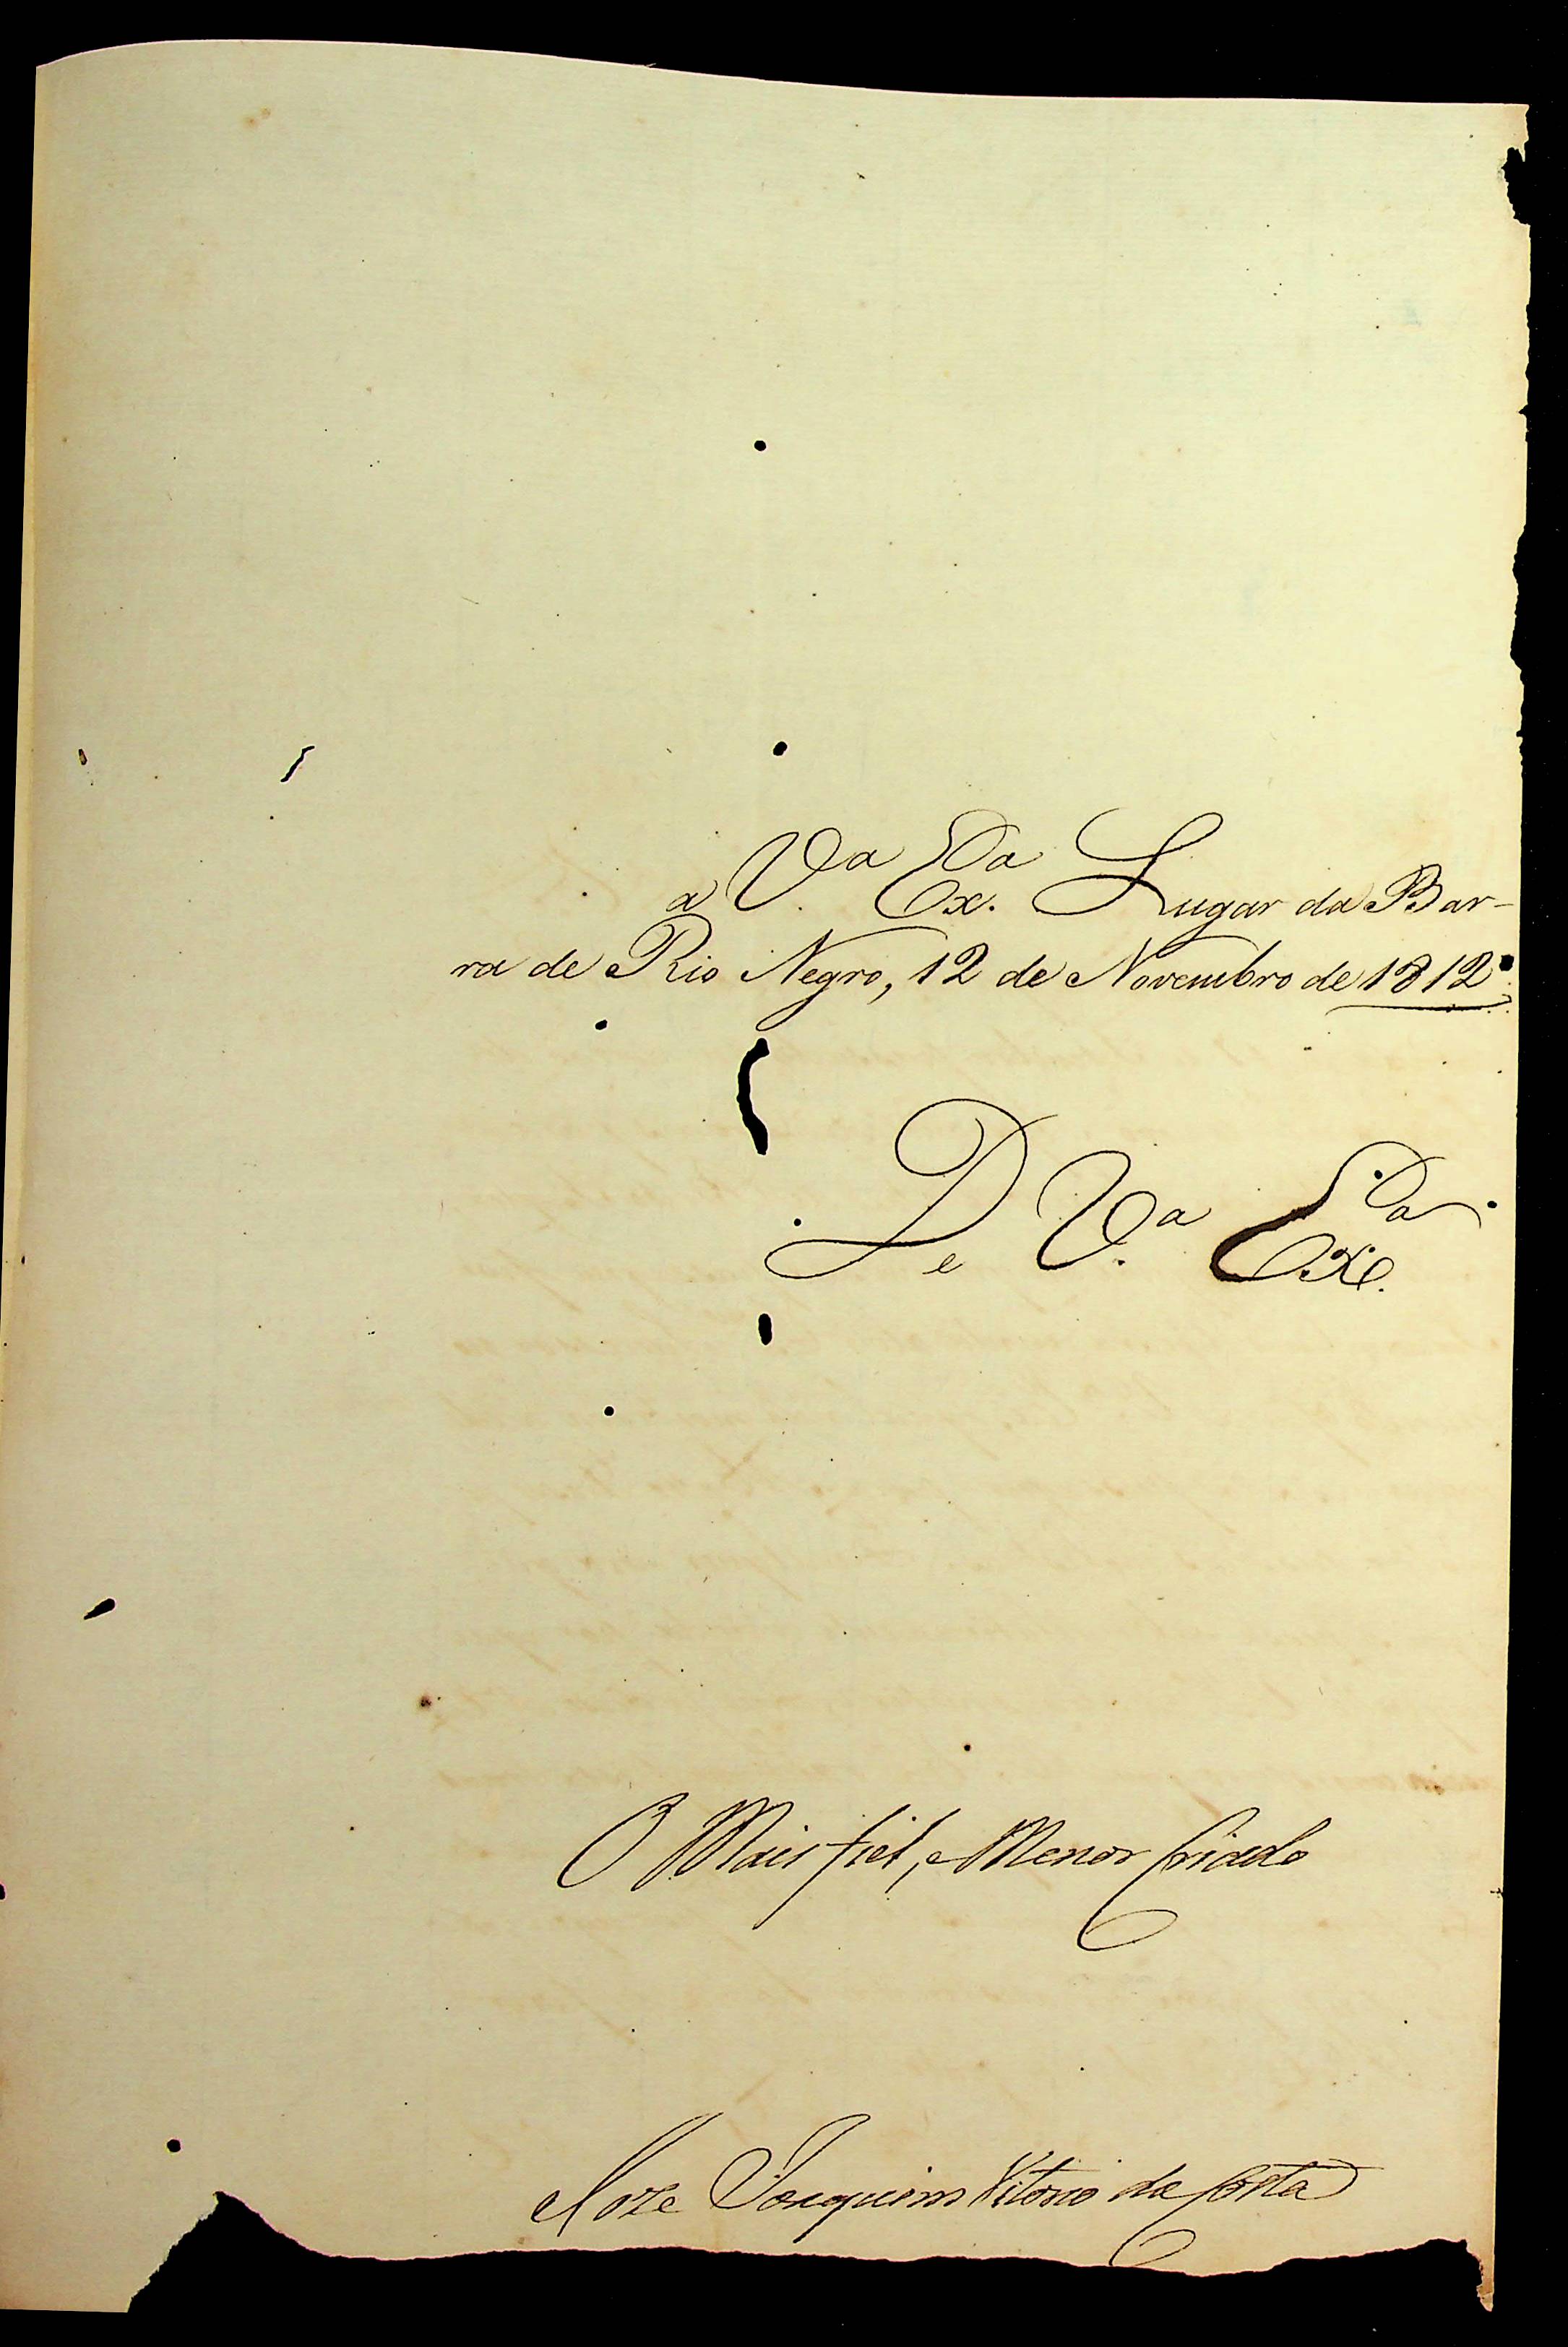 a V.ª Ex.ª Lugar da Bar-
ra de Rio Negro, 12 de Novembro de 1812.
De V.ª Ex.ª
O Mais fiel, e Menor Criado
Joze Joaquim Vitorio da Costa